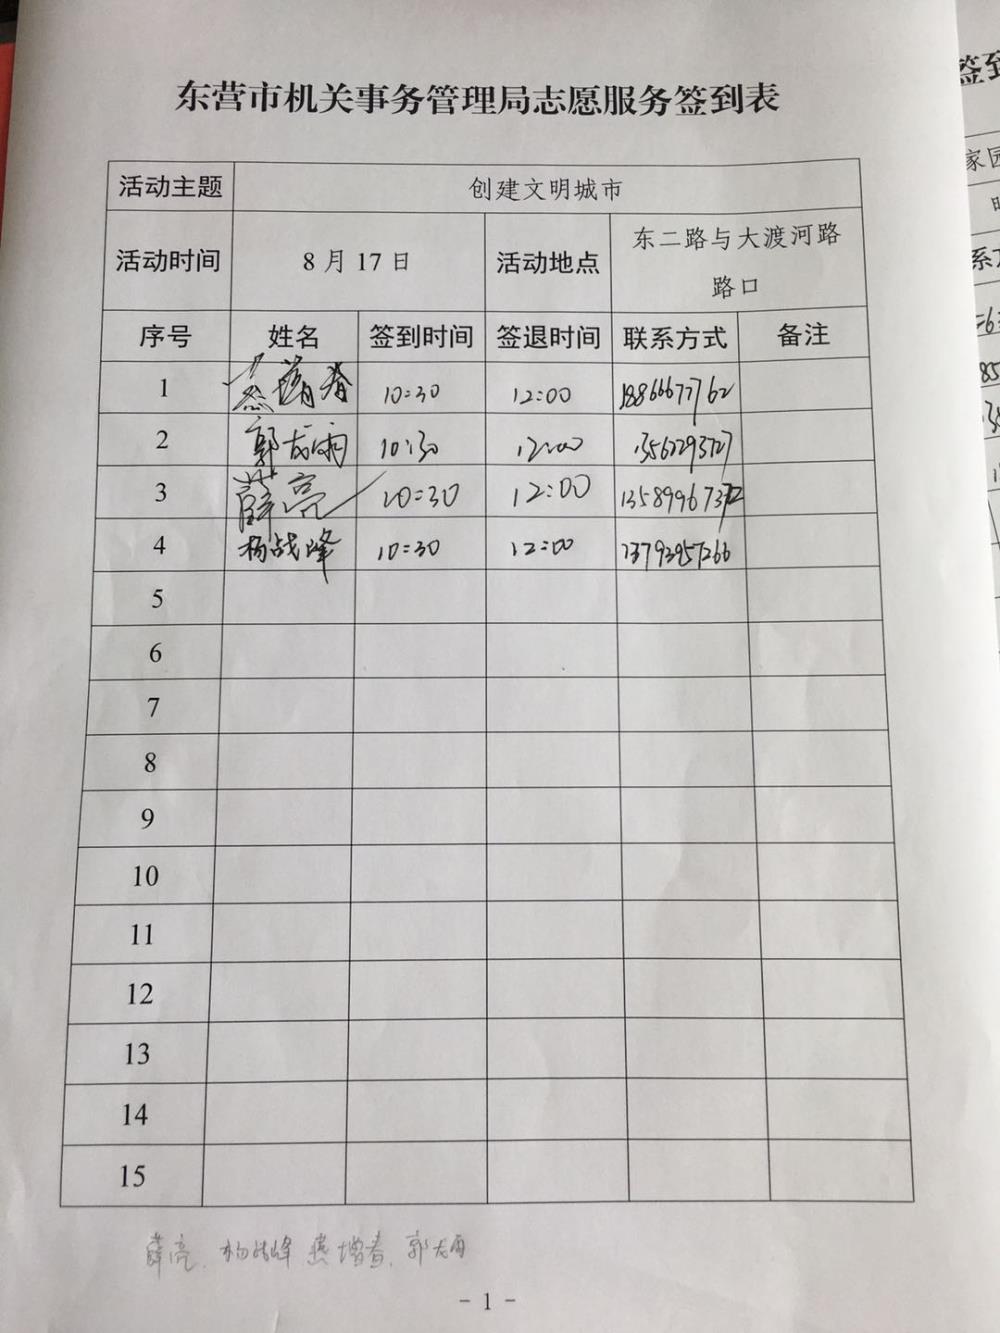 东营市机关事务管理局志愿服务签到表
活动主题 创建文明城市
活动时间 8月17日 活动地点 东二路与大渡河路
路口
序号 姓名 签到时间 签退时间 联系方式 备注
1 增春 10:30 12:00 18866677762
2 郭龙雨 10:30 12:00 13562793727
3 薛亮 10:30 12:00 13589967372
4 杨战峰 10:30 12:00 13793957266
5
6
7
8
9
10
11
12
13
14
15
薛亮. 杨战峰 增春. 郭龙雨
- 1 -
签到
家园